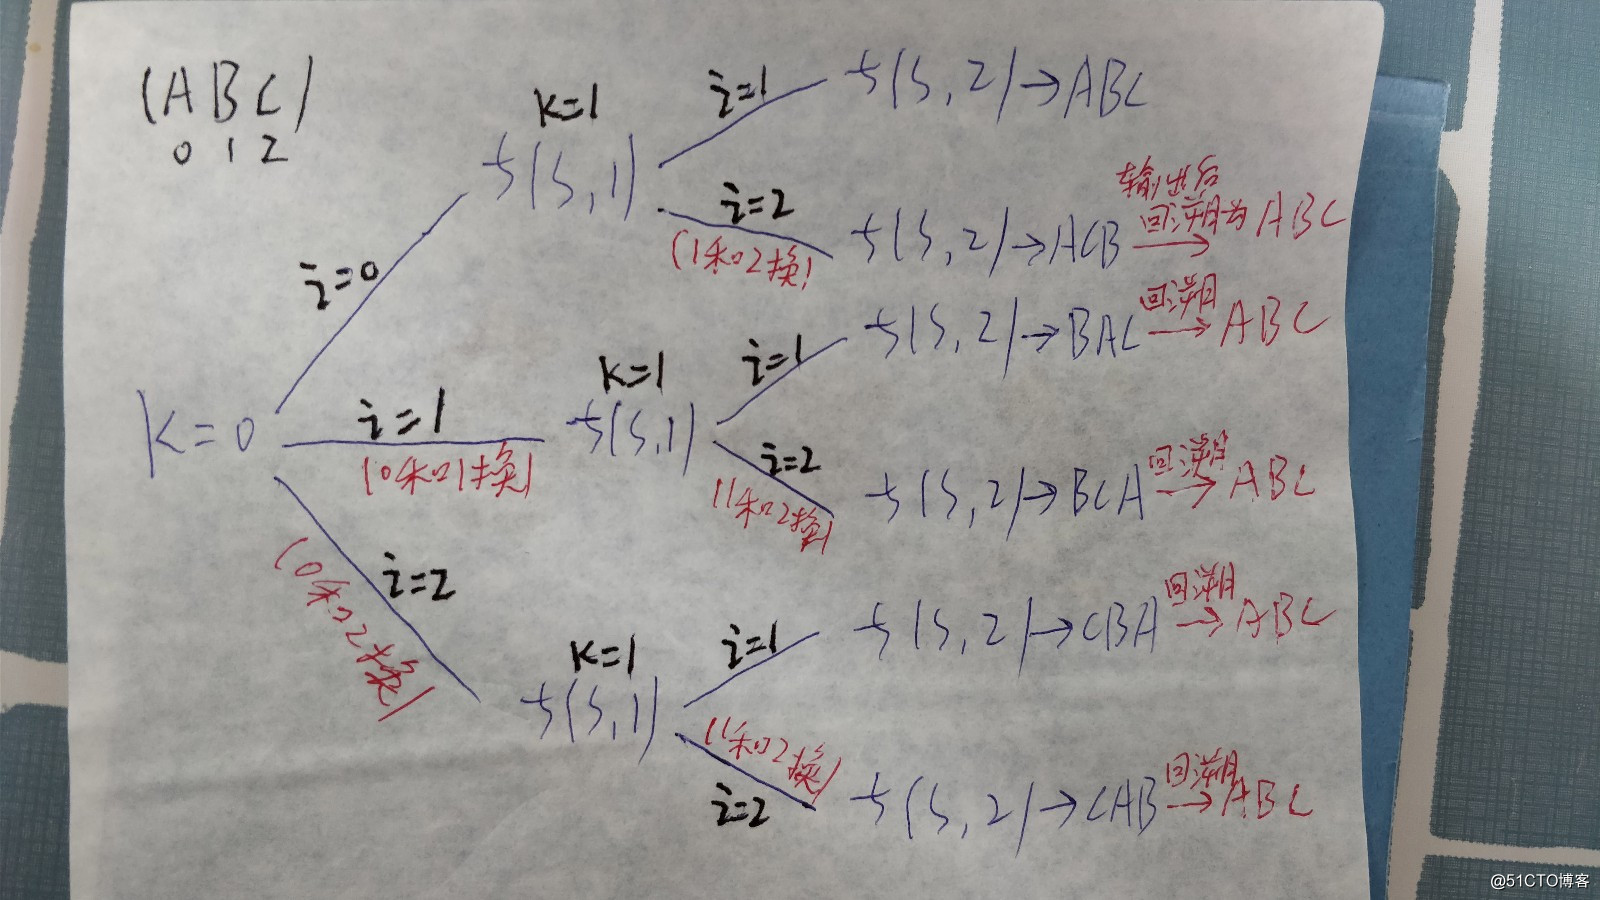 (ABC)
0 1 2
K=0
i=0
K=1
f(S,1)
i=1
f(S,2)→ABC
i=2
(1和2换)
f(S,2)→ACB
输出后
回溯为ABC
i=1
(0和1换)
K=1
f(S,1)
i=1
f(S,2)→BAC
回溯
→ABC
i=2
(1和2换)
f(S,2)→BCA
回溯
→ABC
i=2
(0和2换)
K=1
f(S,1)
i=1
f(S,2)→CBA
回溯
→ABC
(1和2换)
i=2
f(S,2)→CAB
回溯
→ABC
@51CTO博客